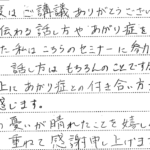 度は ご講義 ありがとうござい
伝わる 話し方や あがり症を
た私は こちらのセミナーに参加
話し方は もちろんのことですが
上に あがり症との 付き合い方
感じます。
の憂いが晴れたことを嬉し
重ねて 感謝申し上げます